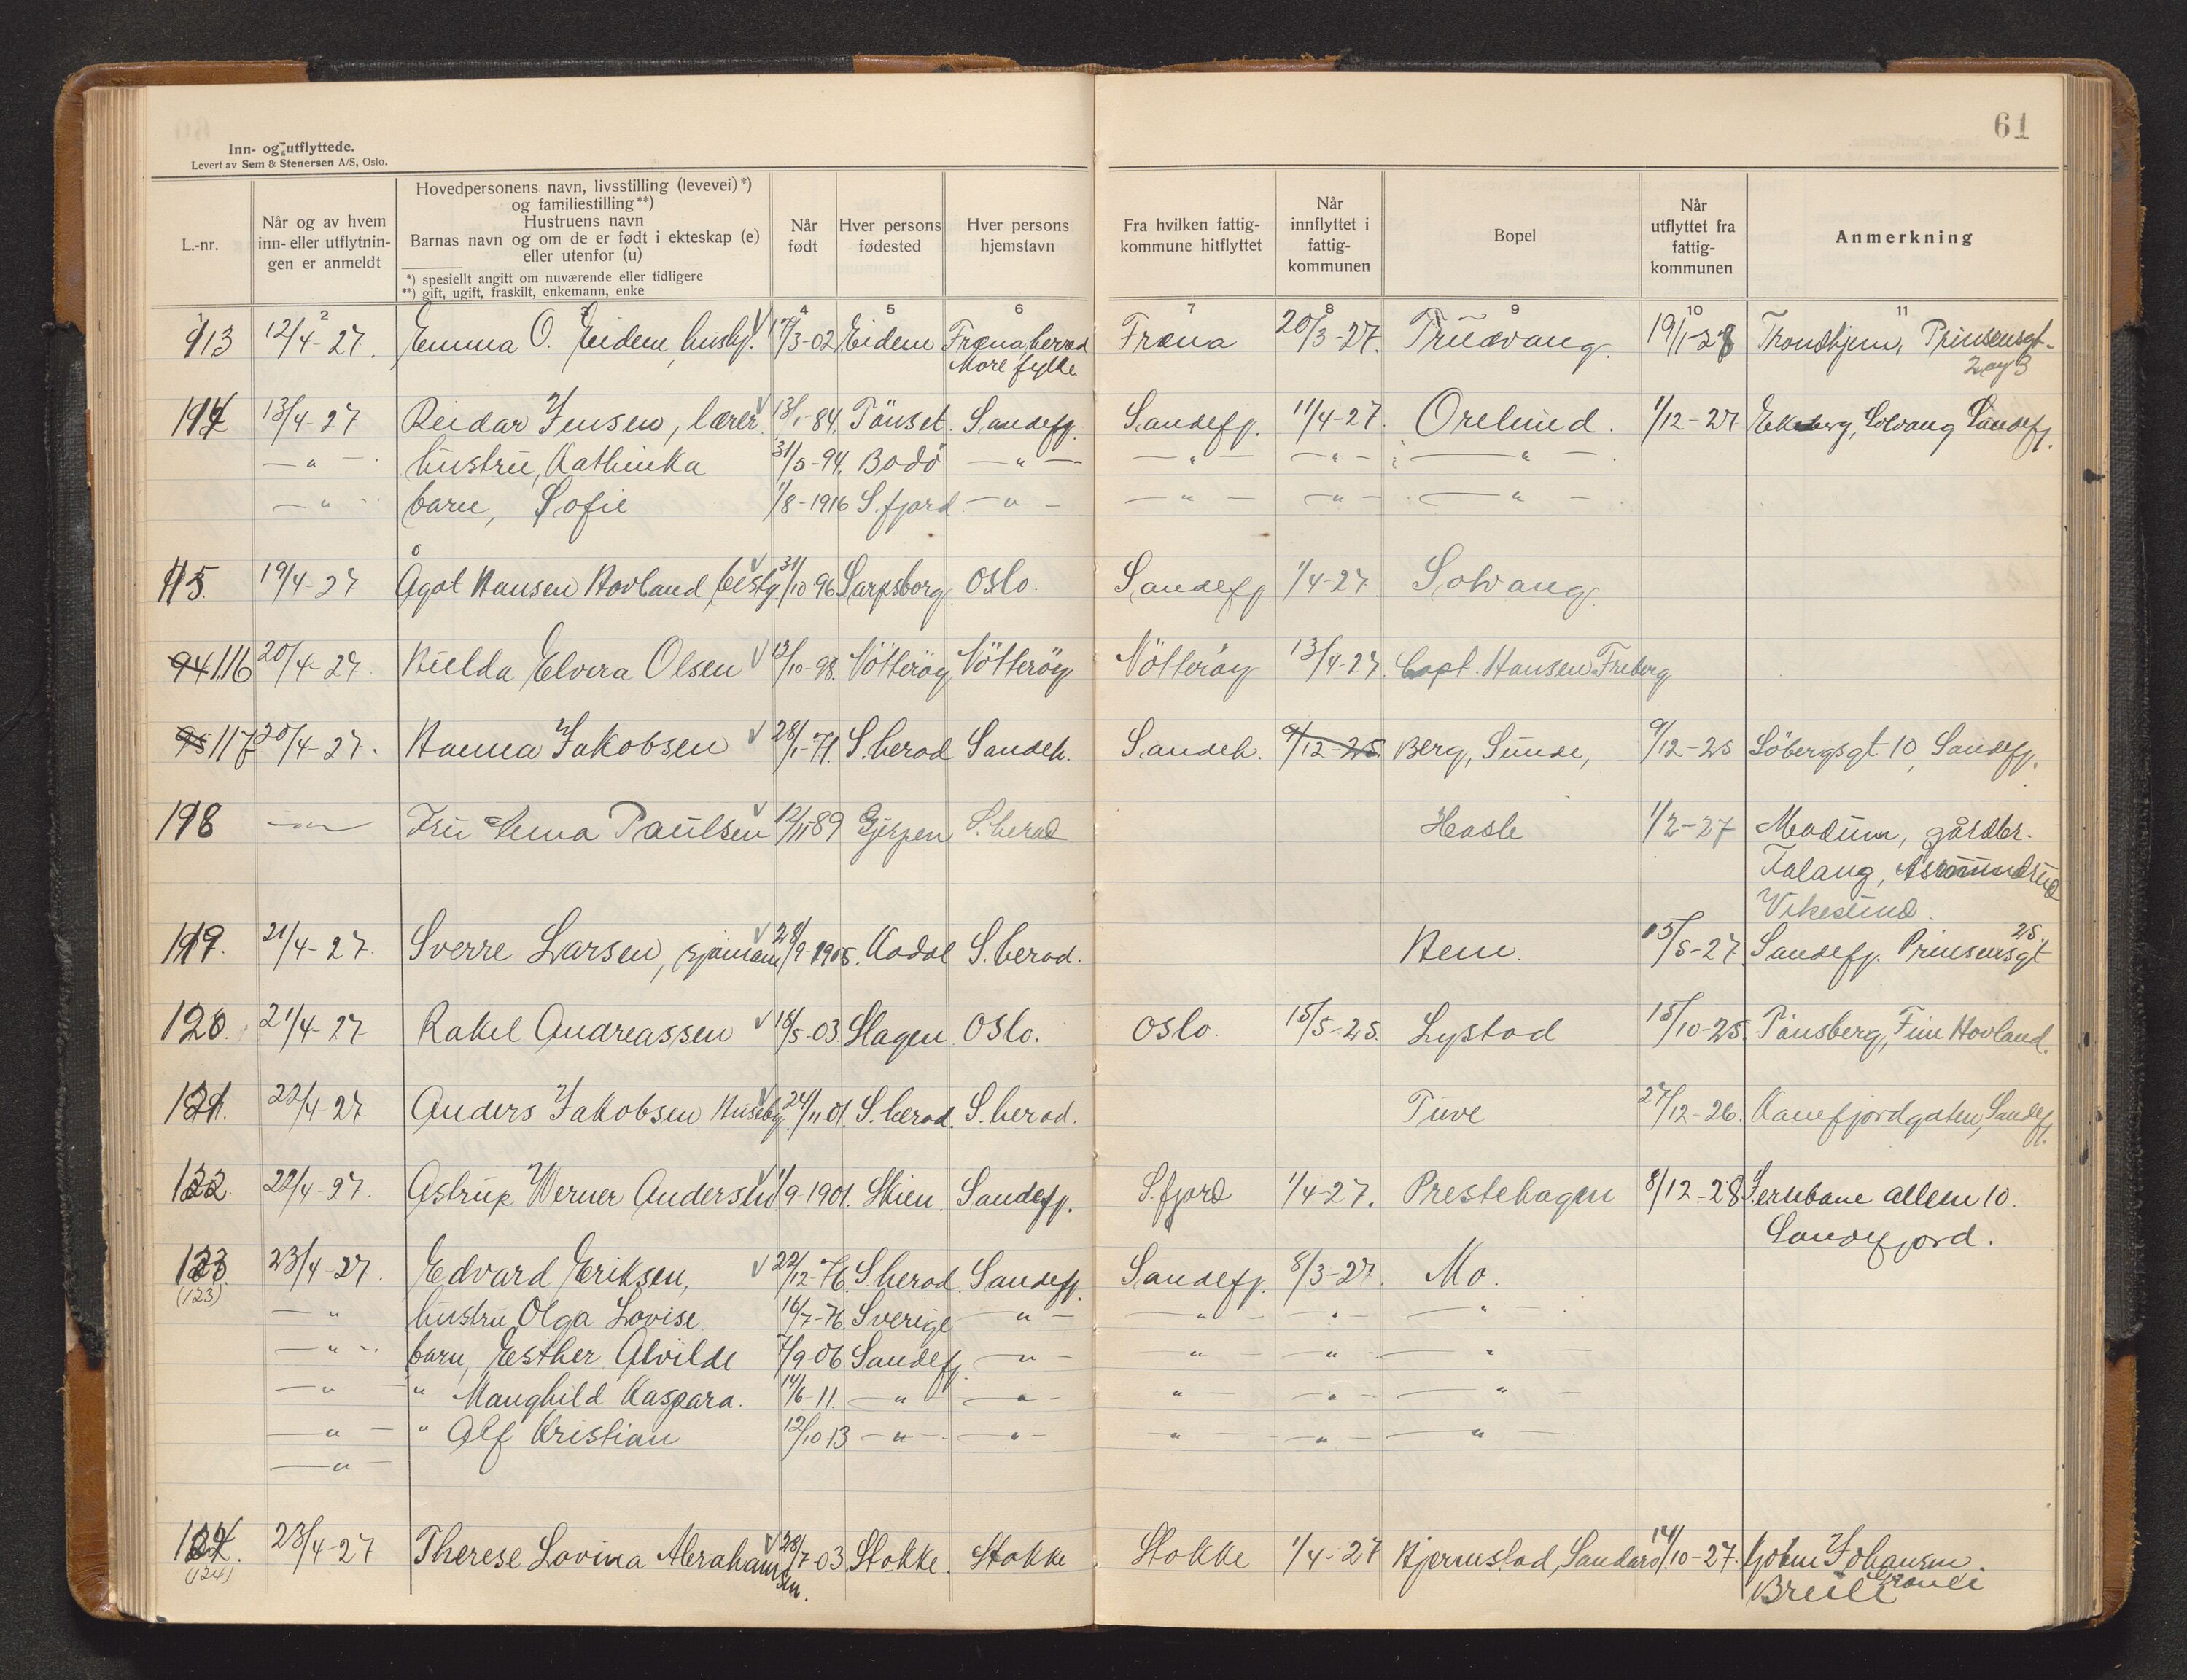 61
Inn- og utflyttede.
Levert av Sem & Stenersen A/S, Oslo.
L.-nr.
Når og av hvem inn- eller utflytnin-gen er anmeldt
Hovedpersonens navn, livsstilling (levevei)*) og familiestilling**) Hustruens navn Barnas navn og om de er født i ekteskap (e) eller utenfor (u)
*) spesiellt angitt om nuværende eller tidligere
**) gift, ugift, fraskilt, enkemann, enke
Når født
Hver persons fødested
Hver persons hjemstavn
Fra hvilken fattig-kommune hitflyttet
Når innflyttet i fattig-kommunen
Bopel
Når utflyttet fra fattig-kommunen
Anmerkning
1 2 3 4 5 6 7 8 9 10 11
113 12/4-27. Emma O. Eidem, husbg. 17/3-02 Eidem Fræna herred Fræna 20/3-27. Truevang. 19/1-28 Trondhjem, Prinsensgt.
Møre fylke
114 13/4-27 Reidar Jensen, lærer 13/1-84. Tönset. Sandefj. Sandefj. 11/4-27. Orelund. 1/12-27 Ekeberg, Solvang Sandefj.
— " — hustru, Kathinka 31/5-94. Bodö — " — — " — — " — — " —
— " — barn, Sofie 1/8-1916 S.fjord — " — — " — — " — — " —
115. 19/4-27 Ågot Hansen Hovland, 31/10 96 Sarpsborg Oslo. Sandefj. 1/4-27. Solvang.
94 116 20/4-27. Hulda Elvira Olsen 12/10-98. Nötteröy Nötteröy Nötteröy 13/4-27. Capt. Hansen Freberg
95 117 20/4-27. Hanna Jakobsen 28/1-71. S.herad Sandeh. Sandeh. 9/12-25. Berg, Sunde, 9/12-25 Söbergsgt 10, Sandefj.
118 — " — Fru Paulsen 12/11 89 Gjerpen S.herad Hasle 1/2-27 Modum, gårdbr.
Falang,
Vikesund.
119. 21/4-27. Sverre Larsen, sjömann 28/9-1905. Kodal S.herad. Hem. 15/5-27 Sandefj. Prinsensgt 25.
120. 21/4-27 Rakel Andreassen 18/5-03. Slagen Oslo. Oslo. 15/5-25. Lystad 15/10-25. Tönsberg, Finn Hovland.
121. 22/4-27 Anders Jakobsen Huseby 24/11 01. S.herad. S.herad. Tuve 27/12-26. Kamfjordgaten, Sandefj.
122. 22/4-27. Astrup Werner Andersen 1/9-1901. Skien. Sandefj. S.fjord 1/4-27. Prestehagen 8/12-28 Jernbane alleen 10.
Sandefjord.
123 23/4-27. Edvard Eriksen, 22/12-76. S.herad. Sandefj. Sandefj. 8/3-27. Mo.
(123)
— " — hustru, Olga Lovise 16/7-76 Sverige — " — — " — — " — — " —
— " — barn, Esther Alvilde 7/9-06 Sandefj. — " — " — " — — " —
— " — " Manghild Kaspara. 14/6-11. — " — — " — " — — " — — " —
— " — " Alf Kristian 12/10 13 — " — — " — " — " — — " —
— " —
124. 23/4-27 Therese Lovina Abrahamsen. 28/7-03. Stokke. Stokke Stokke 1/4-27 Bjermstad, Sandar 14/10-27. Johansen
(124)